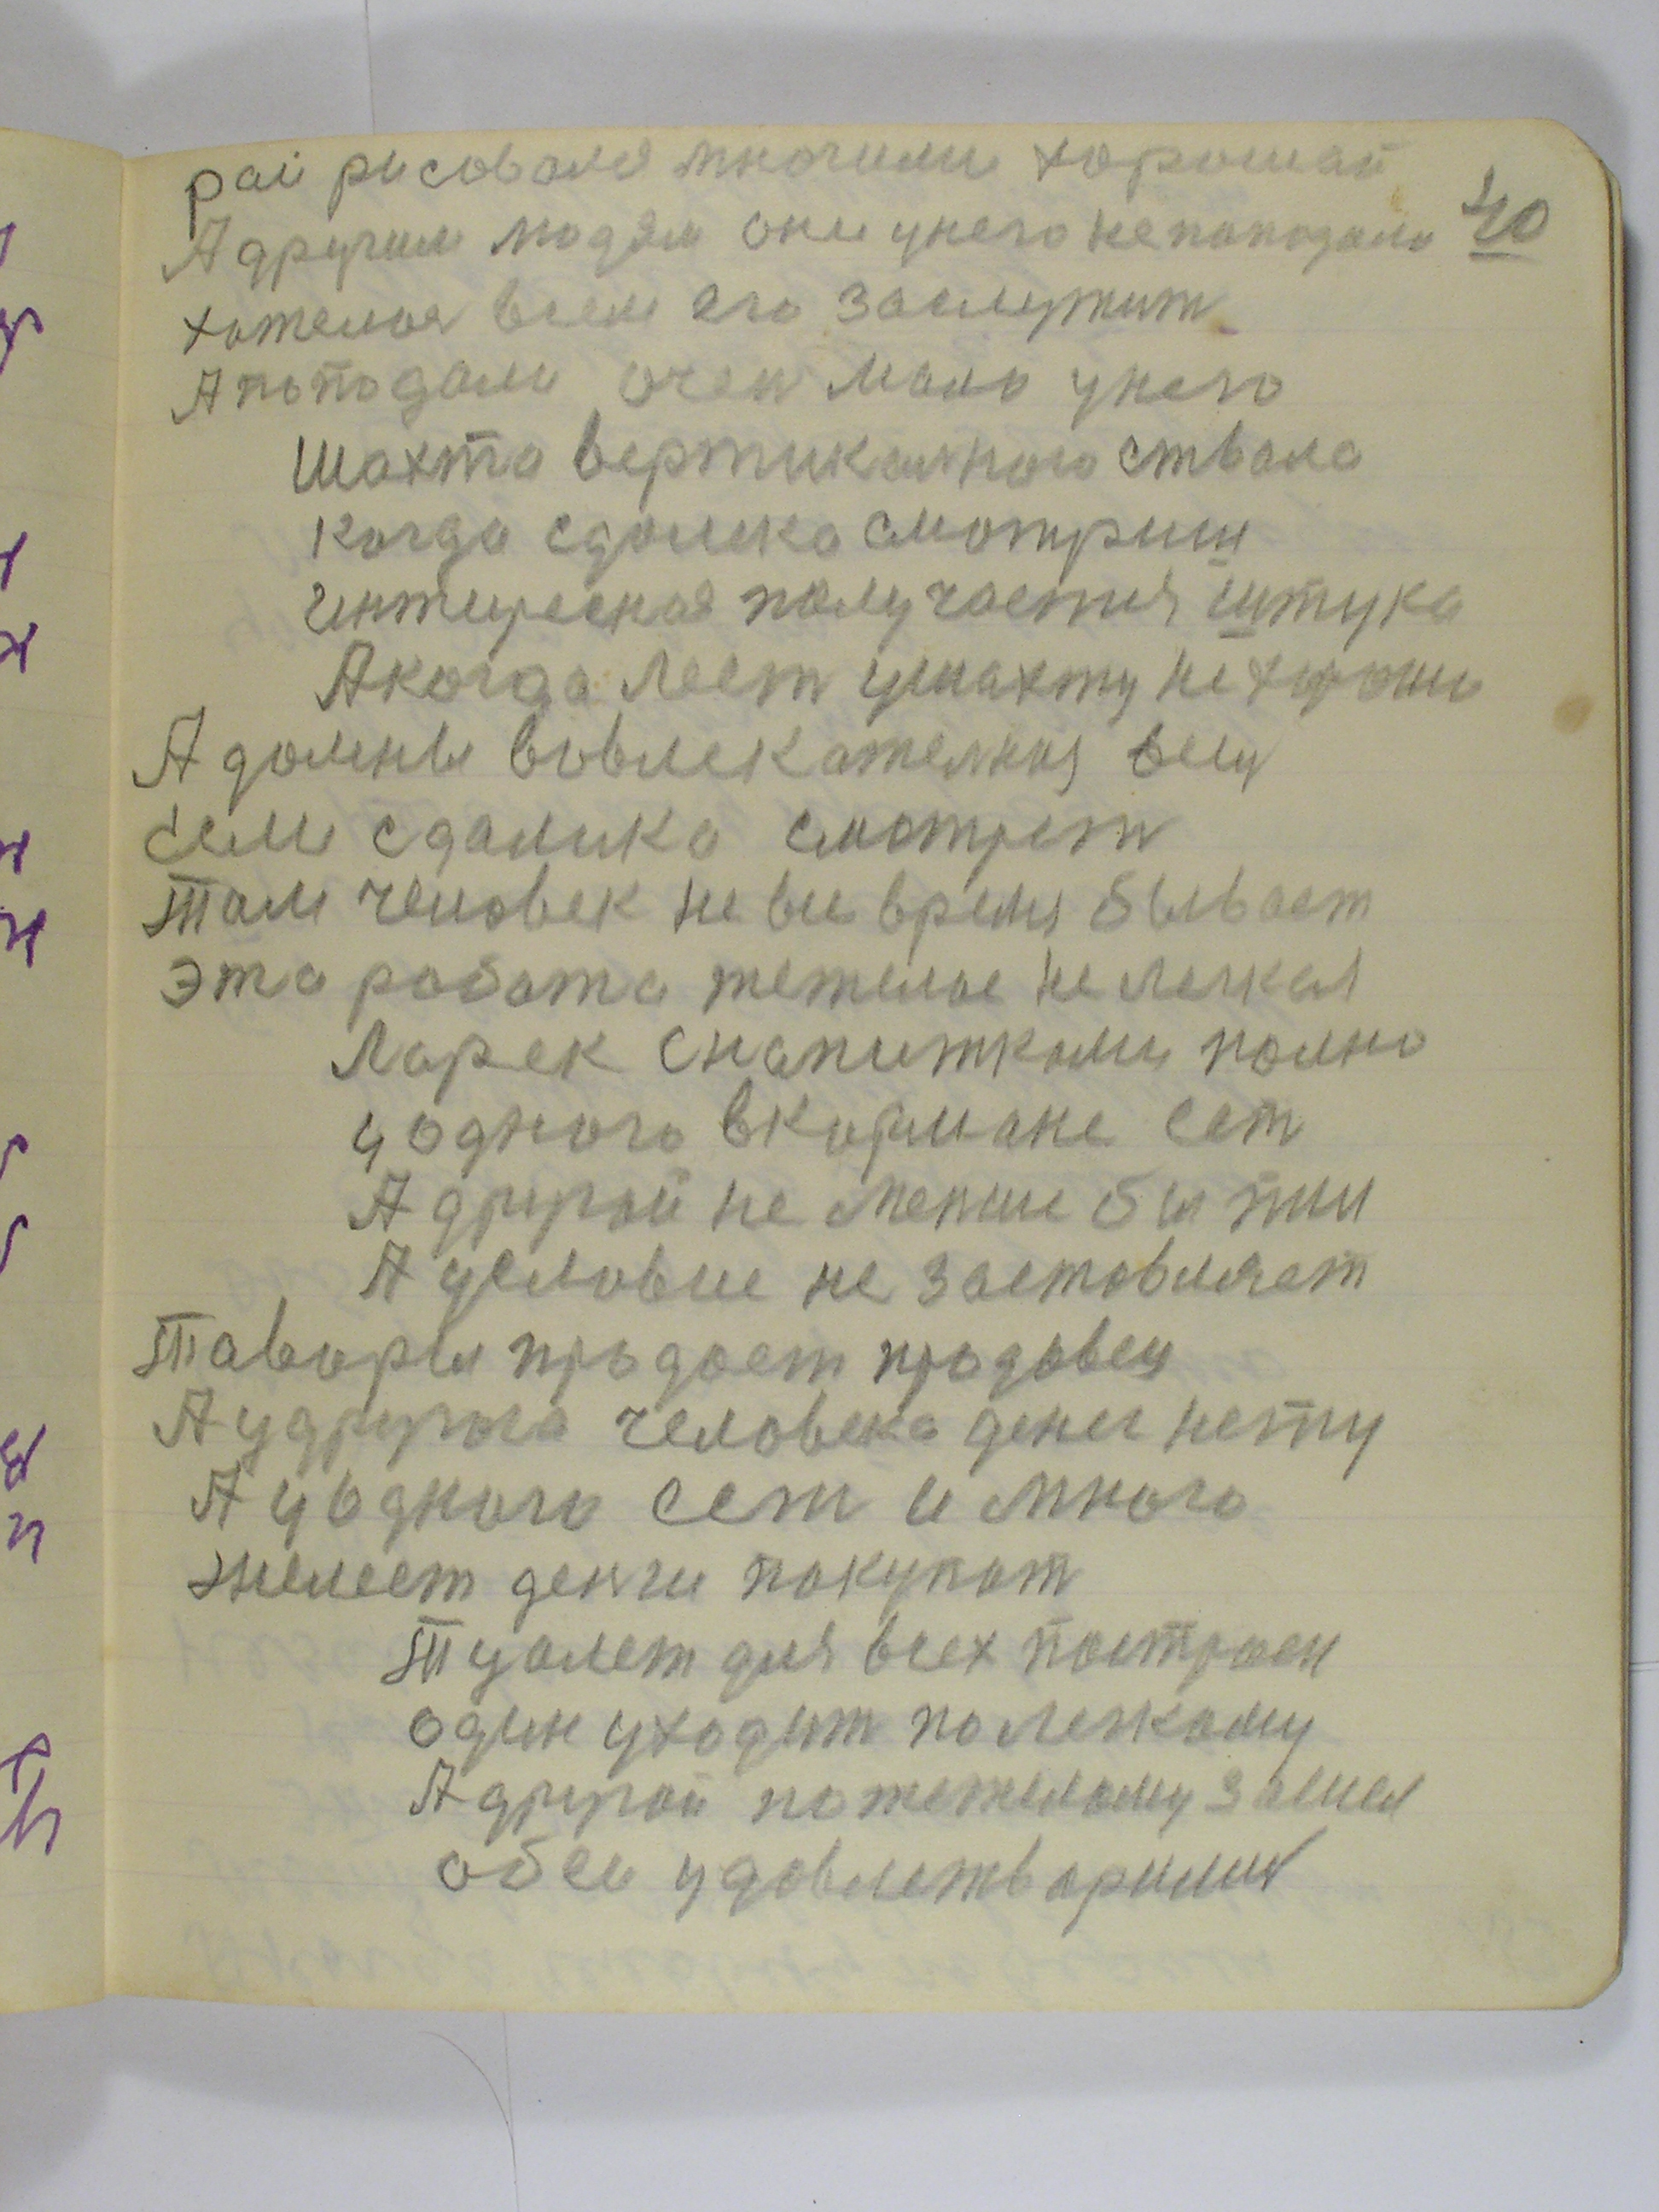 40
рай рисовале многими хорошай
А другим людям они унего непоподали
хотелоя всем его заслужит
А поподали очен мало унего
Шахта вертикалного ствала
Когда сдалека смотриш
интиресная получаетия штука
А когда лест ушахту не хорошо
А домены вовлекателния
если сдалика смотрет
Там человек не все время бывает
Эта работа тежелое не легкая
Ларек снапитками полно
у одного вкормане ест
А другой не менше бы пил
А условие не заставляет
Тавары продает продавец
А удругога человека денег нету
А уодного ест и много
жмеет денги покупат
Туалет для всех построен
один уходит по легкому
А другой по тежелому зашел
обеи удовлетворилис